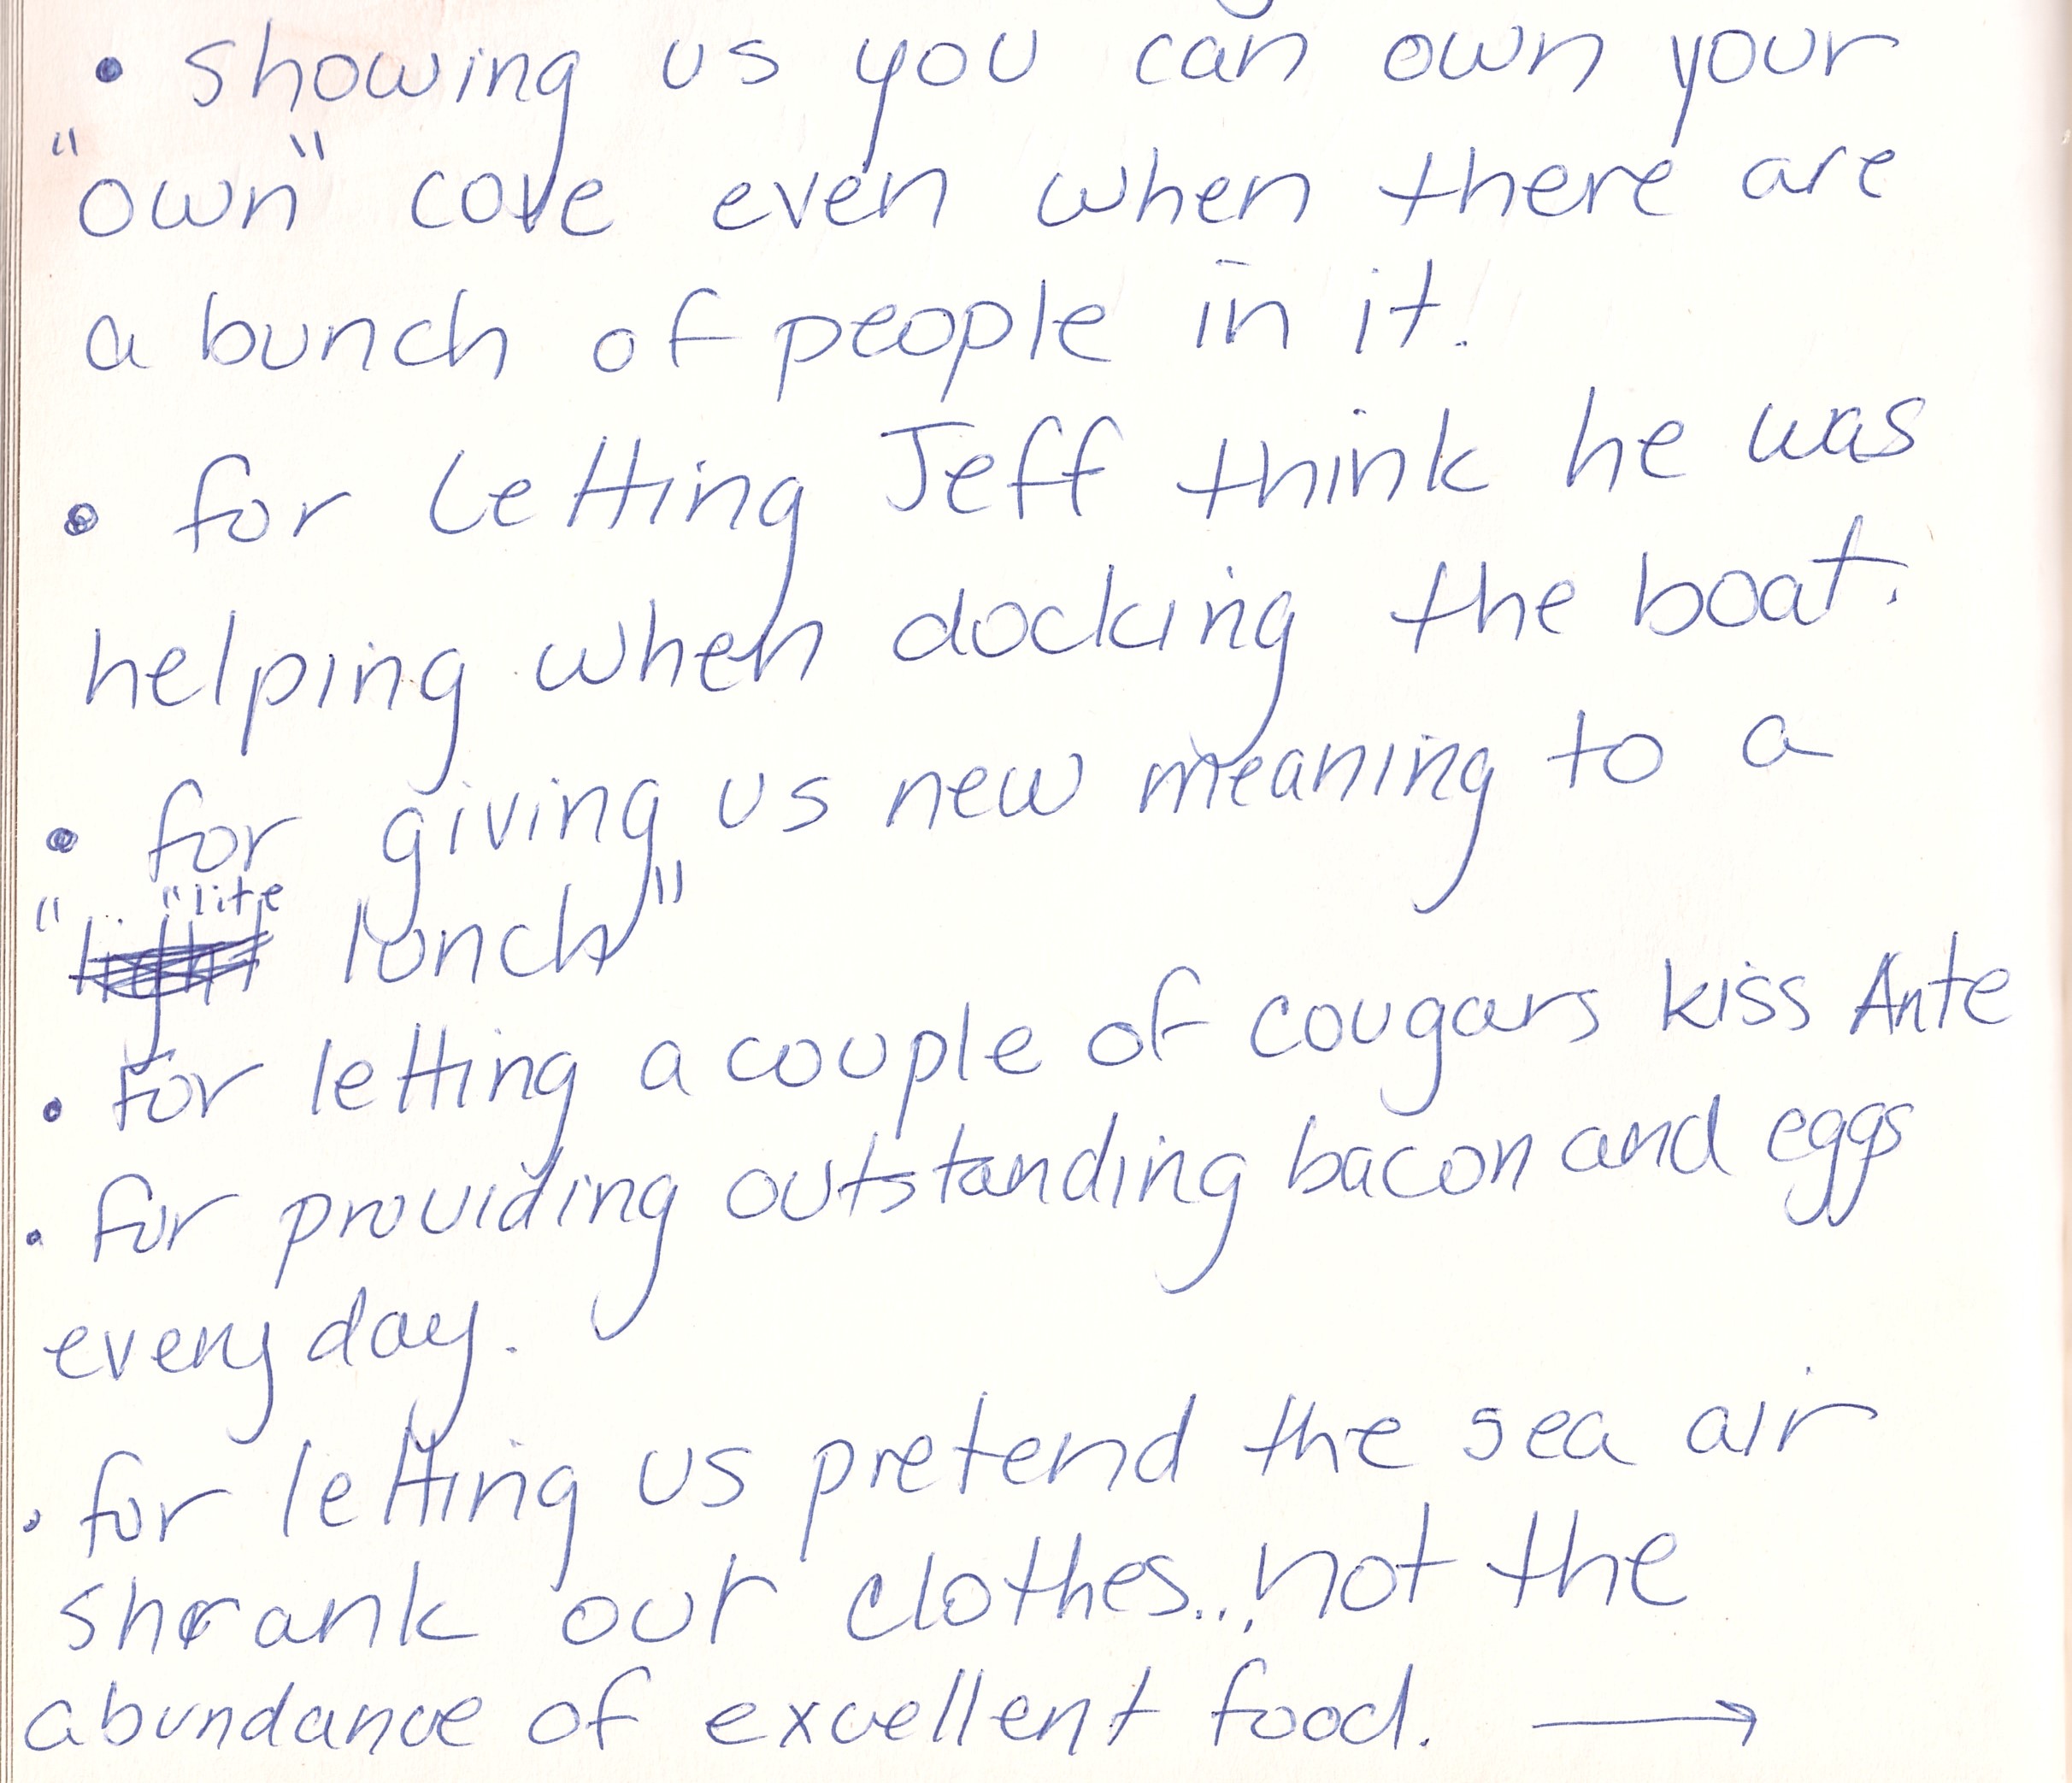 • showing us you can own your
"own" cove even when there are
a bunch of people in it.
• for letting Jeff think he was
helping when docking the boat.
• for giving us new meaning to a
"light "lite lunch"
• for letting a couple of cougars kiss Ante
• for providing outstanding bacon and eggs
every day.
• for letting us pretend the sea air
shrank our clothes... not the
abundance of excellent food. →